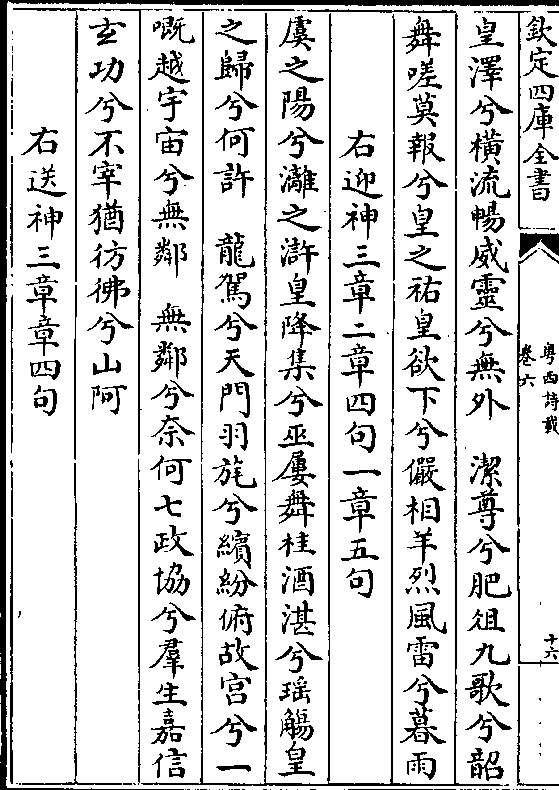 欽定四庫全書
粵西詩載
卷六
十六
皇澤兮横流暢威靈兮無外　潔尊兮肥俎九歌兮韶
舞嗟莫報兮皇之祐皇欲下兮儼相羊烈風雷兮暮雨
右迎神三章二章四句一章五句
虞之陽兮灕之滸皇降集兮巫屢舞桂酒湛兮瑶觴皇
之歸兮何許　龍駕兮天門羽旄兮繽紛俯故宫兮一
嘅越宇宙兮無鄰　無鄰兮奈何七政協兮羣生嘉信
玄功兮不宰猶彷彿兮山阿
右送神三章章四句